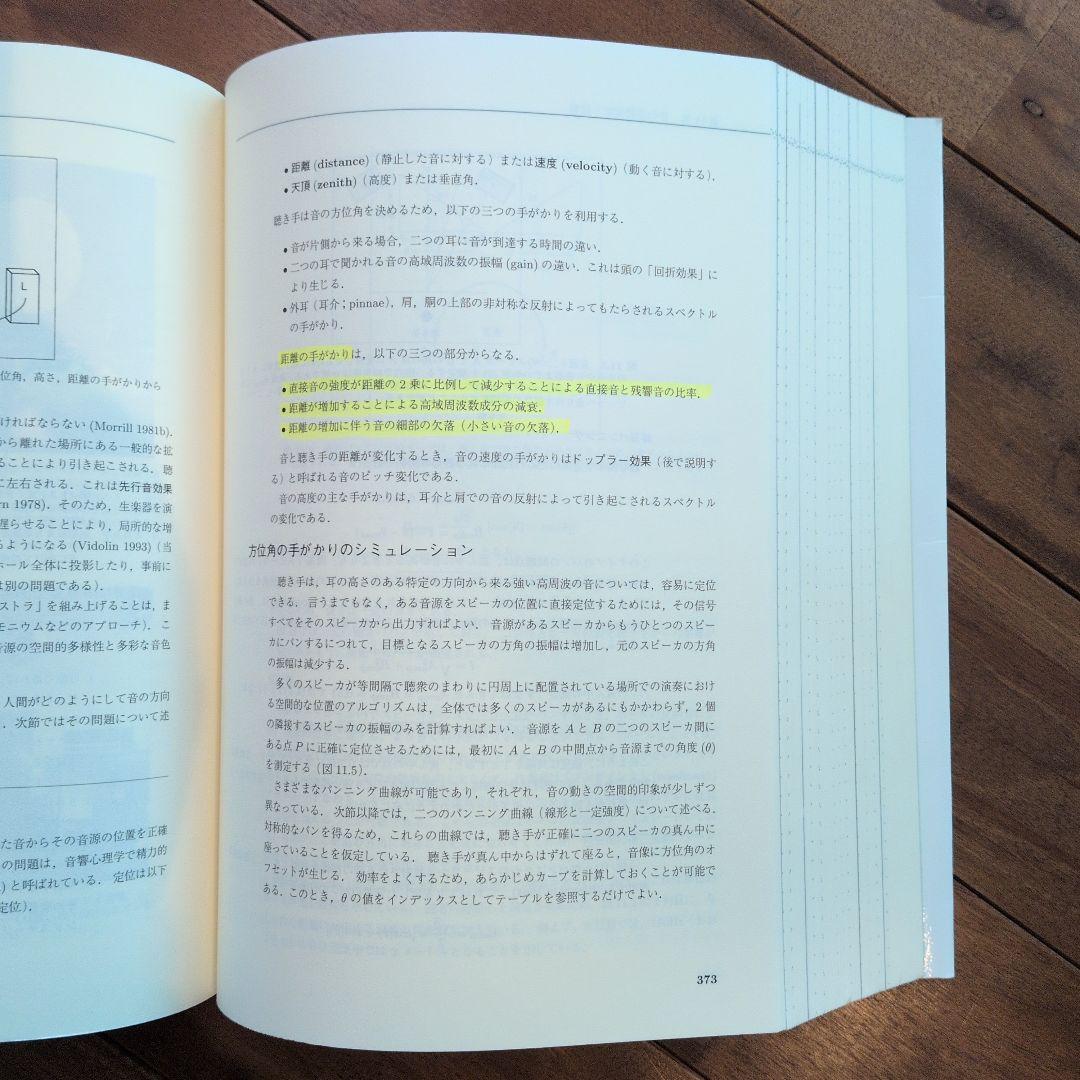 L
位角，高さ，距離の手がかりから
ければならない (Morrill 1981b)．
から離れた場所にある一般的な拡
ることにより引き起こされる．聴
に左右される．これは先行音効果
rn 1978)．そのため，生楽器を演
遅らせることにより，局所的な増
るようになる (Vidolin 1993)（当
ホール全体に投影したり，事前に
は別の問題である）．
ストラ」を組み上げることは，ま
モニウムなどのアプローチ)．こ
音源の空間的多様性と多彩な音色
人間がどのようにして音の方向
．次節ではその問題について述
た音からその音源の位置を正確
の問題は，音響心理学で精力的
) と呼ばれている．定位は以下
定位)．
• 距離 (distance)（静止した音に対する）または速度 (velocity)（動く音に対する）．
• 天頂 (zenith)（高度）または垂直角．
聴き手は音の方位角を決めるため，以下の三つの手がかりを利用する．
• 音が片側から来る場合，二つの耳に音が到達する時間の違い．
• 二つの耳で聞かれる音の高域周波数の振幅 (gain) の違い．これは頭の「回折効果」に
より生じる．
• 外耳（耳介；pinnae)，肩，胴の上部の非対称な反射によってもたらされるスペクトル
の手がかり．
距離の手がかりは，以下の三つの部分からなる．
• 直接音の強度が距離の 2 乗に比例して減少することによる直接音と残響音の比率．
• 距離が増加することによる高域周波数成分の減衰．
• 距離の増加に伴う音の細部の欠落（小さい音の欠落）．
音と聴き手の距離が変化するとき，音の速度の手がかりはドップラー効果（後で説明す
る）と呼ばれる音のピッチ変化である．
音の高度の主な手がかりは，耳介と肩での音の反射によって引き起こされるスペクトル
の変化である．
方位角の手がかりのシミュレーション
聴き手は，耳の高さのある特定の方向から来る強い高周波の音については，容易に定位
できる．言うまでもなく，ある音源をスピーカの位置に直接定位するためには，その信号
すべてをそのスピーカから出力すればよい．音源があるスピーカからもうひとつのスピー
カにパンするにつれて，目標となるスピーカの方角の振幅は増加し，元のスピーカの方角
の振幅は減少する．
多くのスピーカが等間隔で聴衆のまわりに円周上に配置されている場所での演奏におけ
る空間的な位置のアルゴリズムは，全体では多くのスピーカがあるにもかかわらず，2 個
の隣接するスピーカの振幅のみを計算すればよい．音源を A と B の二つのスピーカ間に
ある点 P に正確に定位させるためには，最初に A と B の中間点から音源までの角度 (θ)
を測定する（図 11.5)．
さまざまなパンニング曲線が可能であり，それぞれ，音の動きの空間的印象が少しずつ
異なっている．次節以降では，二つのパンニング曲線（線形と一定強度）について述べる．
対称的なパンを得るため，これらの曲線では，聴き手が正確に二つのスピーカの真ん中に
座っていることを仮定している．聴き手が真ん中からはずれて座ると，音像に方位角のオ
フセットが生じる．効率をよくするため，あらかじめカーブを計算しておくことが可能で
ある．このとき，θ の値をインデックスとしてテーブルを参照するだけでよい．
373